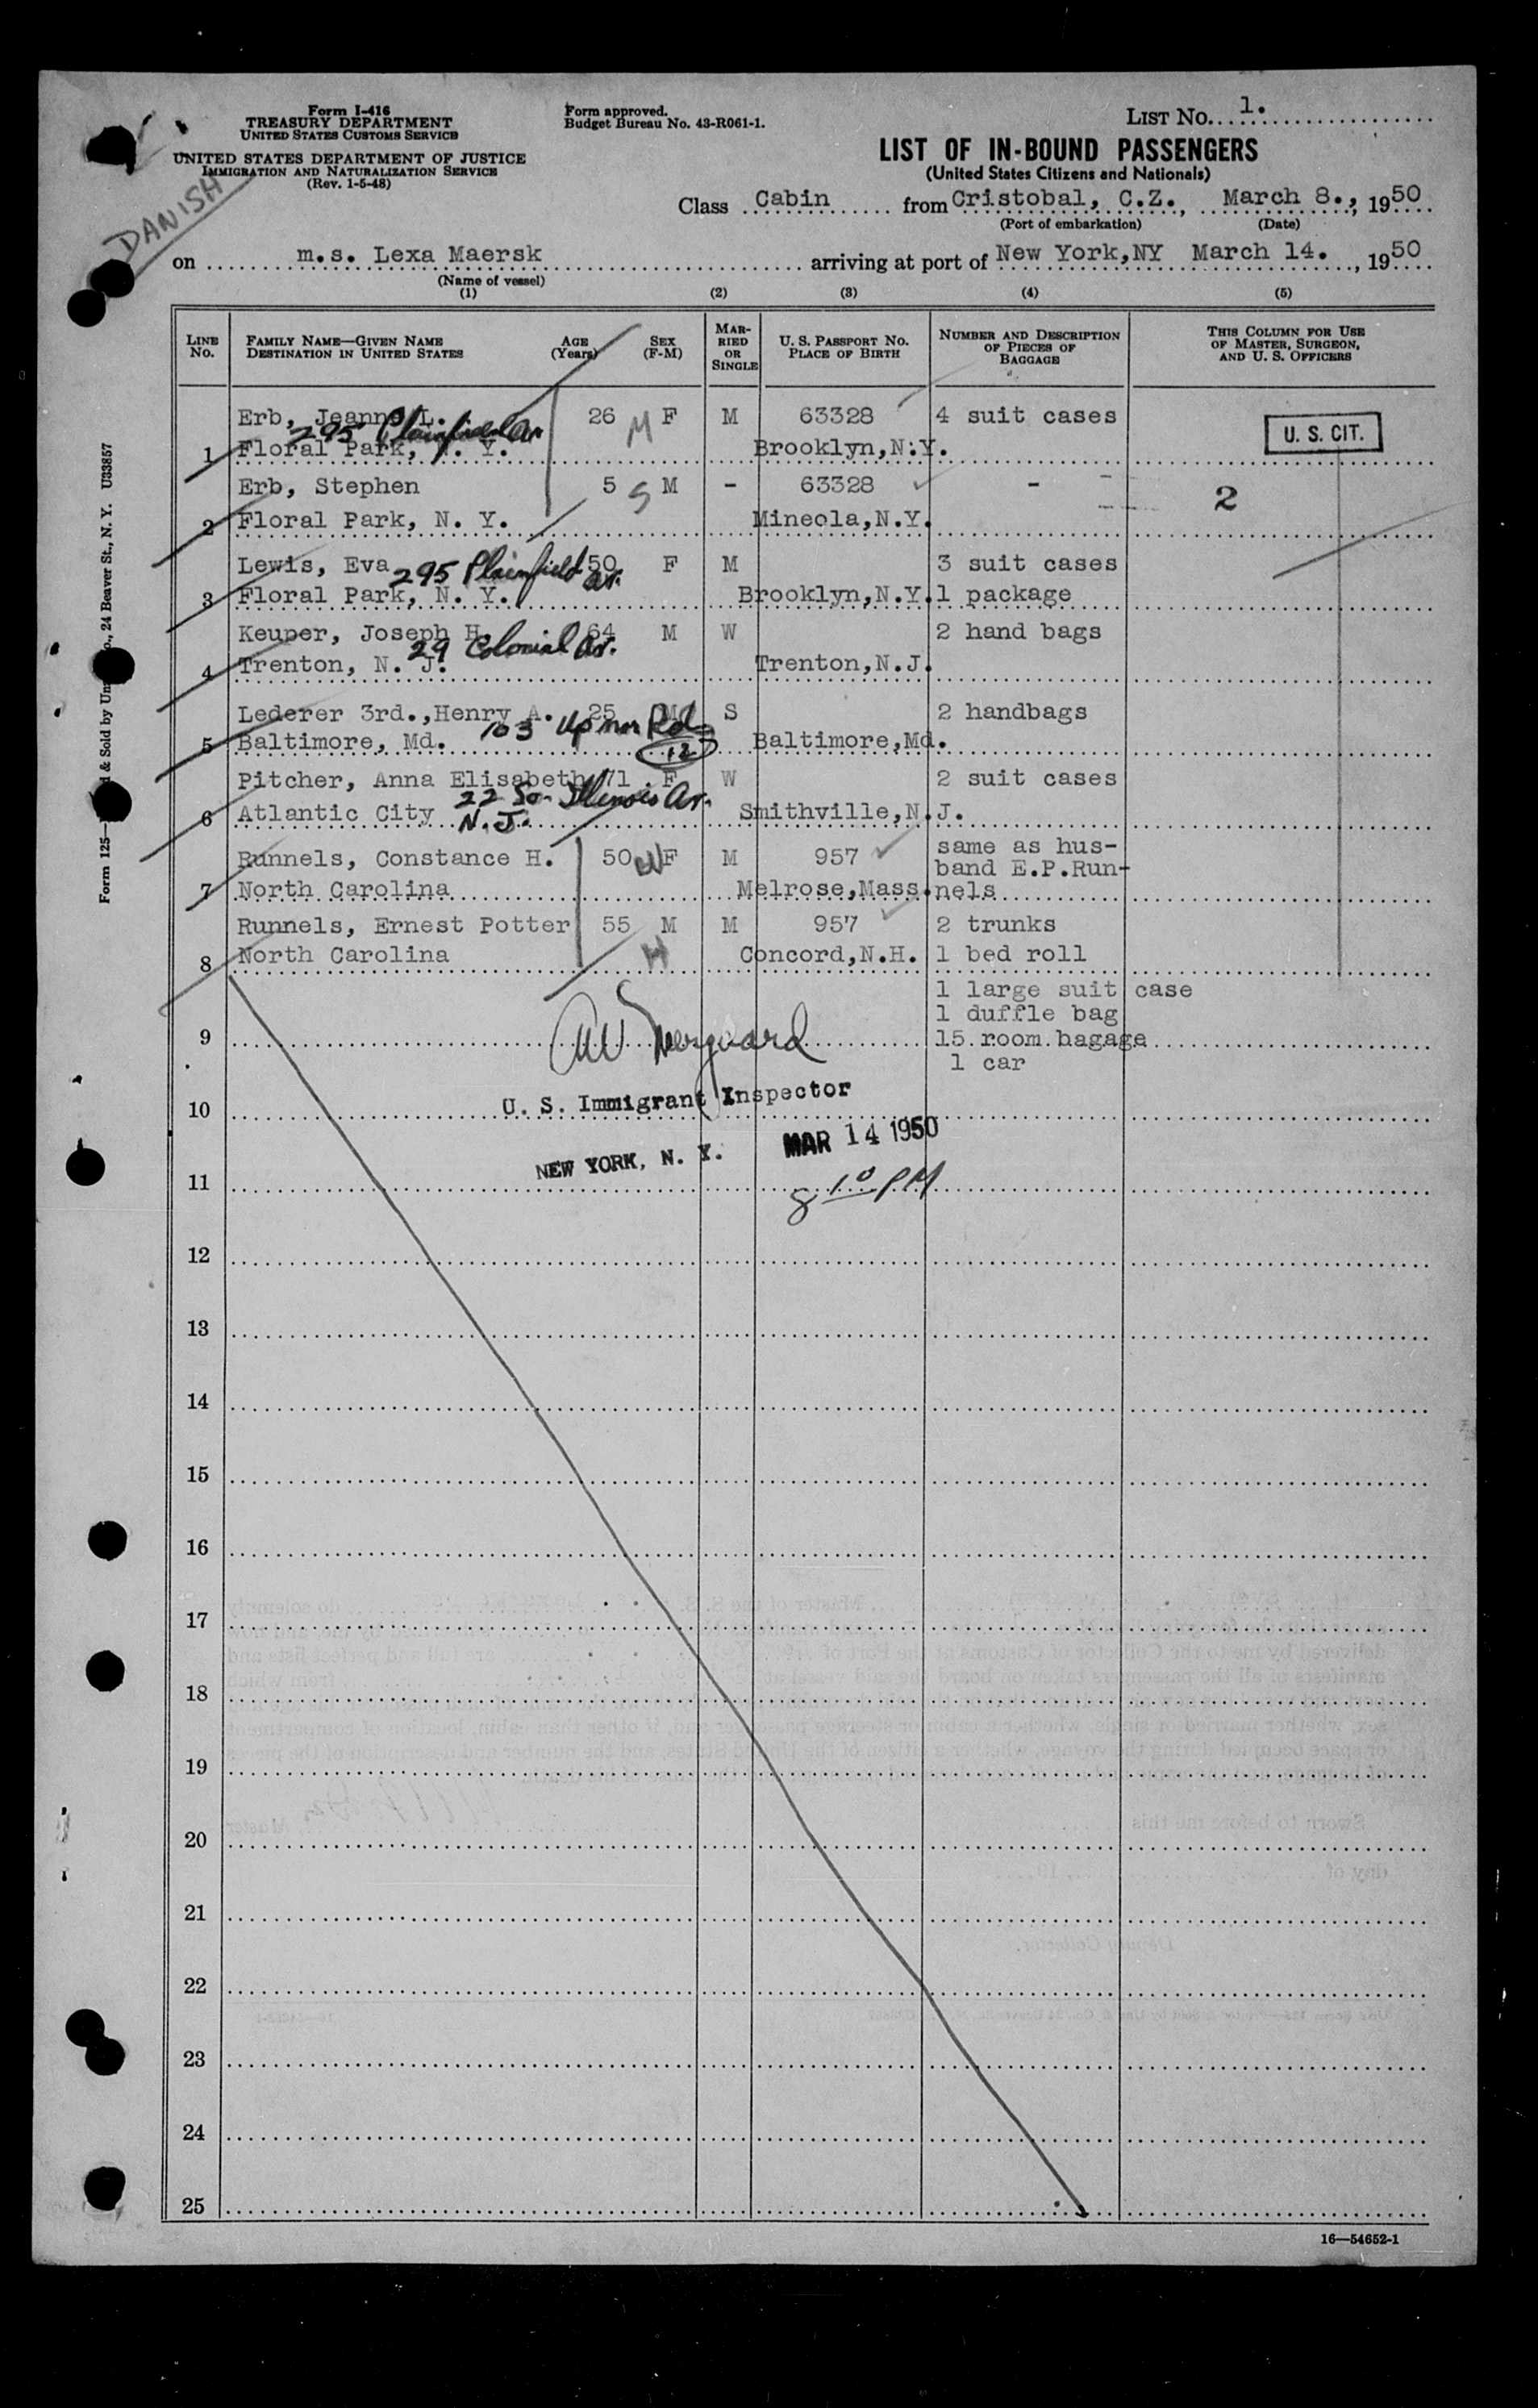 Form I-416
TREASURY DEPARTMENT
UNITED STATES CUSTOMS SERVICE
UNITED STATES DEPARTMENT OF JUSTICE
IMMIGRATION AND NATURALIZATION SERVICE
(Rev. 1-5-48)
Form approved.
Budget Bureau No. 43-R061-1.
LIST NO. 1.
LIST OF IN-BOUND PASSENGERS
(United States Citizens and Nationals)
DANISH
Class Cabin from Cristobal, C.Z., March 8., 1950
(Port of embarkation) (Date)
on m.s. Lexa Maersk arriving at port of New York,NY March 14. , 1950
(Name of vessel)
(1) (2) (3) (4) (5)
LINE No.
FAMILY NAME—GIVEN NAME
DESTINATION IN UNITED STATES
AGE (Years)
SEX (F-M)
MARRIED OR SINGLE
U. S. PASSPORT NO.
PLACE OF BIRTH
NUMBER AND DESCRIPTION OF PIECES OF BAGGAGE
THIS COLUMN FOR USE OF MASTER, SURGEON, AND U. S. OFFICERS
Erb, Jeanne L. 26 M F M 63328 4 suit cases
295 Plainfield Av
U. S. CIT.
1 Floral Park, N. Y. Brooklyn,N.Y.
Erb, Stephen 5 S M - 63328 -
2
2 Floral Park, N. Y. Mineola,N.Y.
Lewis, Eva 50 F M 3 suit cases
295 Plainfield Av.
3 Floral Park, N. Y. Brooklyn,N.Y. 1 package
Keuper, Joseph H. 64 M W 2 hand bags
29 Colonial Av.
4 Trenton, N. J. Trenton,N.J.
Lederer 3rd.,Henry A. 25 M S 2 handbags
103 Rd
5 Baltimore, Md. (12) Baltimore,Md.
Pitcher, Anna Elisabeth 71 F W 2 suit cases
22 So. Illinois Av.
6 Atlantic City N.J. Smithville,N.J.
Runnels, Constance H. 50 W F M 957 same as husband E.P.Run-
7 North Carolina Melrose,Mass. nels
Runnels, Ernest Potter 55 M M 957 2 trunks
8 North Carolina H Concord,N.H. 1 bed roll
1 large suit case
1 duffle bag
9 15 room bagage
1 car
U. S. Immigrant Inspector
10
NEW YORK, N. Y. MAR 14 1950
11
8 10 PM
12
13
14
15
16
17
18
19
20
21
22
23
24
25
16—54652-1
Form 125— & Sold by Un o., 24 Beaver St., N. Y. U33857